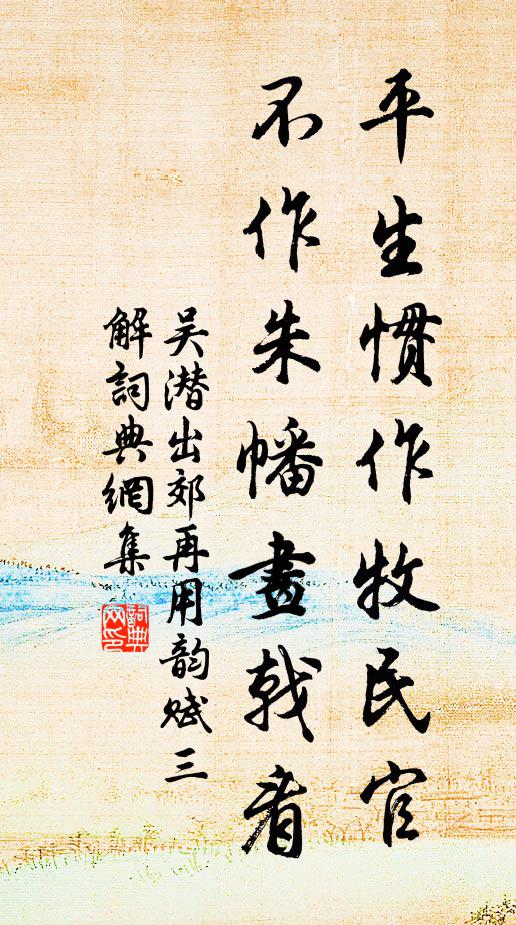 平生慣作牧民官
不作朱幡畫戟看
吴潜出郊再用韵赋三
解詞典網集
詞典網印